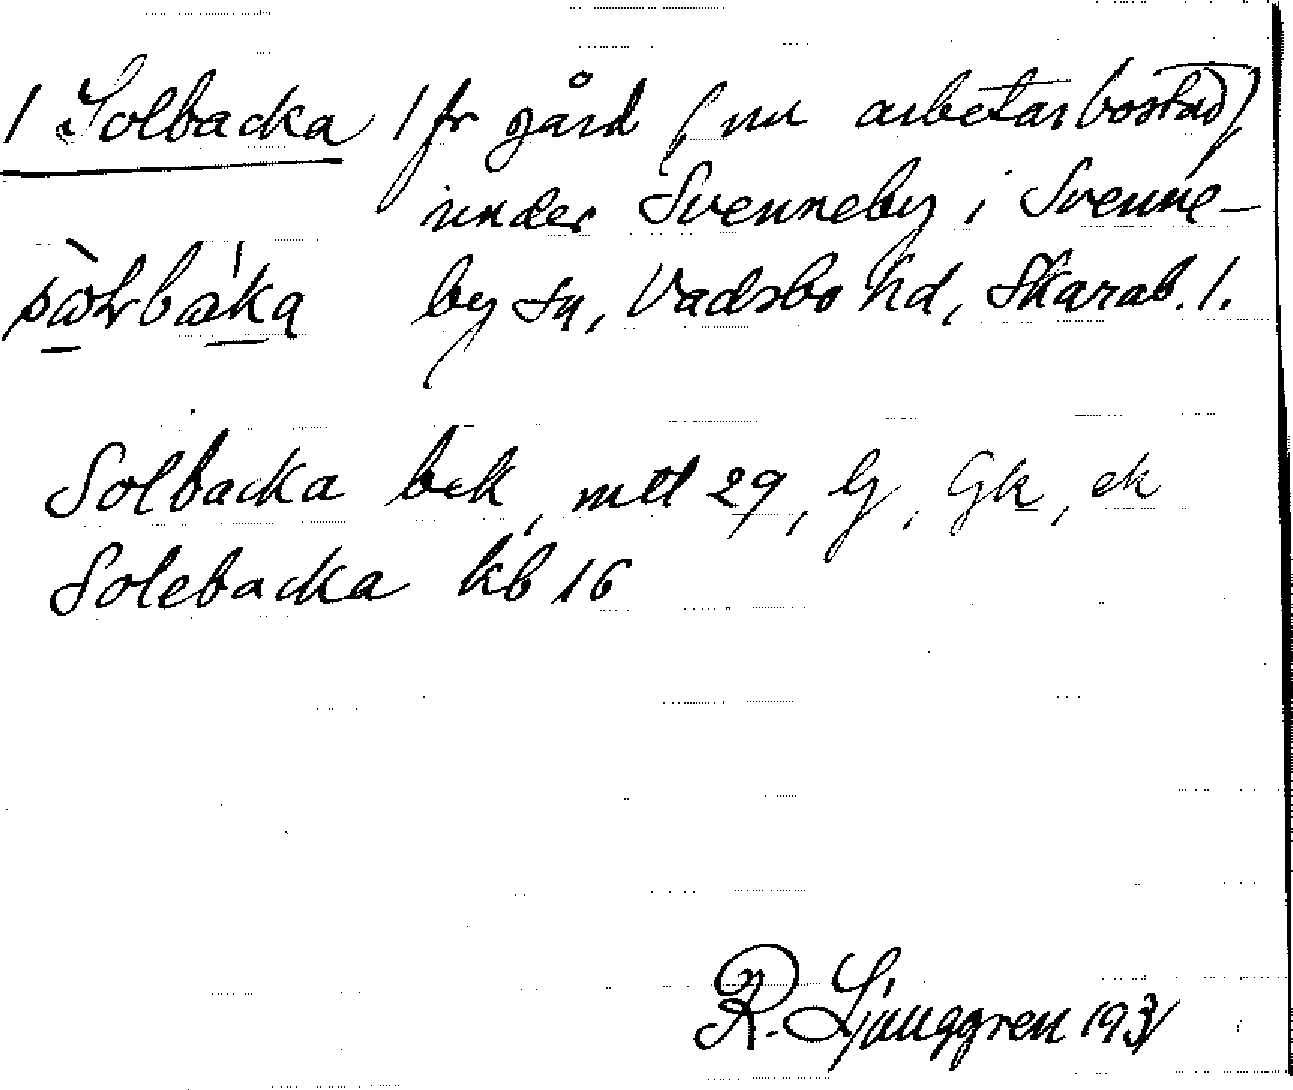 / Solbacka / fr gård (nu arbetarbostad)
under Svenneby i Svenne-
by sn, Vadsbo hd, Skarab. l.
Solbacka bek, mtl 29, G, Gk, ek
Solebacka kb 16
R. Ljunggren 1931